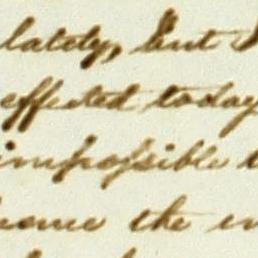 lately, but I
effected today
impossible t
home the in